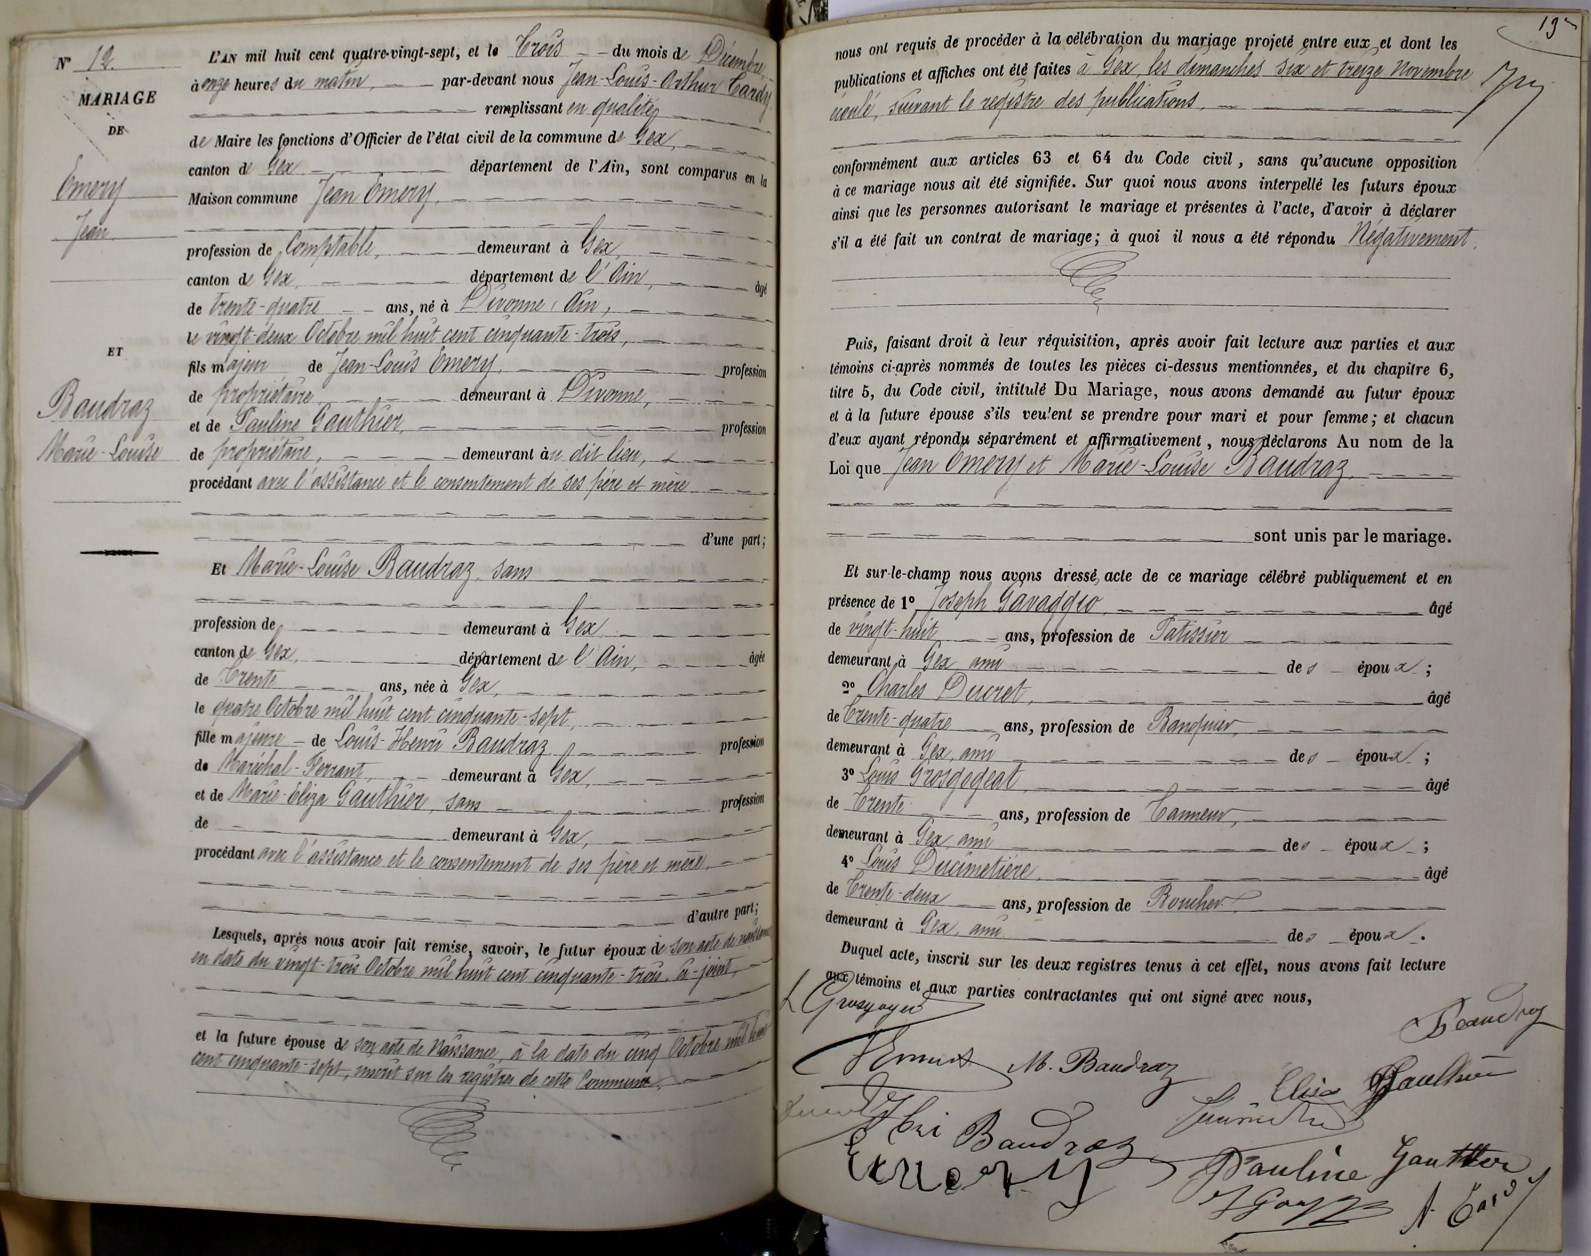 Nº 12.
MARIAGE
DE
Emery
Jean
ET
Baudraz
Marie-Louise
L'AN mil huit cent quatre-vingt-sept, et le Trois du mois de Décembre
à onze heures du matin, par-devant nous Jean-Louis-Arthur Tardy
remplissant en qualité
de Maire les fonctions d'Officier de l'état civil de la commune de Gex,
canton de Gex département de l'Ain, sont comparus en la
Maison commune Jean Emery,
profession de Comptable, demeurant à Gex,
canton de Gex, département de l'Ain, âgé
de trente-quatre ans, né à Divonne, Ain,
le vingt-deux Octobre mil huit cent cinquante-trois,
fils majeur de Jean-Louis Emery, profession
de propriétaire demeurant à Divonne,
et de Pauline Gauthier, profession
de propriétaire, demeurant au dit lieu,
procédant avec l'assistance et le consentement de ses père et mère
d'une part;
Et Marie-Louise Baudraz, sans
profession de demeurant à Gex
canton de Gex, département de l'Ain, âgée
de Trente ans, née à Gex,
le quatre Octobre mil huit cent cinquante-sept,
fille majeure de Louis-Henri Baudraz profession
de Maréchal-Ferrant, demeurant à Gex,
et de Marie-Eliza Gauthier, sans profession
de demeurant à Gex,
procédant avec l'assistance et le consentement de ses père et mère,
d'autre part;
Lesquels, après nous avoir fait remise, savoir, le futur époux de son acte de naissance
en date du vingt-trois Octobre mil huit cent cinquante-trois, ci-joint,
et la future épouse de son acte de Naissance, à la date du cinq Octobre mil huit
cent cinquante-sept, inscrit sur les registres de cette Commune.
nous ont requis de procéder à la célébration du mariage projeté entre eux et dont les
publications et affiches ont été faites à Gex, les dimanches six et treize Novembre
écoulé, suivant le registre des publications,
conformément aux articles 63 et 64 du Code civil, sans qu'aucune opposition
à ce mariage nous ait été signifiée. Sur quoi nous avons interpellé les futurs époux
ainsi que les personnes autorisant le mariage et présentes à l'acte, d'avoir à déclarer
s'il a été fait un contrat de mariage; à quoi il nous a été répondu Négativement.
Puis, faisant droit à leur réquisition, après avoir fait lecture aux parties et aux
témoins ci-après nommés de toutes les pièces ci-dessus mentionnées, et du chapitre 6,
titre 5, du Code civil, intitulé Du Mariage, nous avons demandé au futur époux
et à la future épouse s'ils veulent se prendre pour mari et pour femme; et chacun
d'eux ayant répondu séparément et affirmativement, nous déclarons Au nom de la
Loi que Jean Emery et Marie-Louise Baudraz,
sont unis par le mariage.
Et sur-le-champ nous avons dressé acte de ce mariage célébré publiquement et en
présence de 1º Joseph Gavaggio, âgé
de vingt-huit ans, profession de Patissier
demeurant à Gex ami des époux;
2º Charles Ducret, âgé
de Trente-quatre ans, profession de Banquier,
demeurant à Gex, ami des époux;
3º Louis Grosgogeat, âgé
de Trente ans, profession de Tanneur,
demeurant à Gex ami des époux;
4º Louis Ducimetière, âgé
de Trente-deux ans, profession de Boucher,
demeurant à Gex, ami des époux.
Duquel acte, inscrit sur les deux registres tenus à cet effet, nous avons fait lecture
aux témoins et aux parties contractantes qui ont signé avec nous,
Baudraz
M. Baudraz
Elisa Gauthier
Hri Baudraz
Emery
Pauline Gauthier
A. Tardy